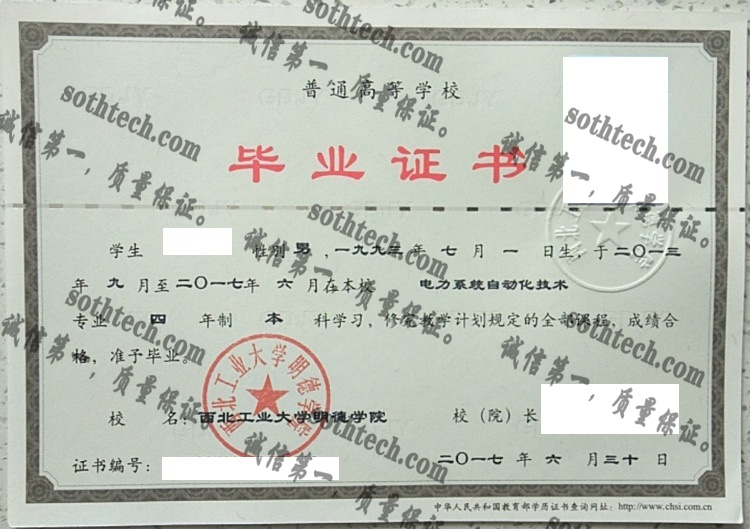 普通高等学校
毕业证书
学生 性别 男 ,一九九三 年 七 月 一 日生, 于二〇一三
年 九 月至二〇一七年 六 月在本校 电力系统自动化技术
专业 四 年制 本 科学习, 修完教学计划规定的全部课程, 成绩合
格, 准予毕业。
校 名: 西北工业大学明德学院
校(院)长
证书编号:
二〇一七 年 六 月 三十 日
中华人民共和国教育部学历证书查询网址: http://www.chsi.com.cn
西北工业大学明德学院
sothtech.com
诚信第一,质量保证。
sothtech.com
诚信第一,质量保证。
sothtech.com
诚信第一,质量保证。
sothtech.com
诚信第一,质量保证。
sothtech.com
诚信第一,质量保证。
sothtech.com
诚信第一,质量保证。
sothtech.com
诚信第一,质量保证。
sothtech.com
诚信第一,质量保证。